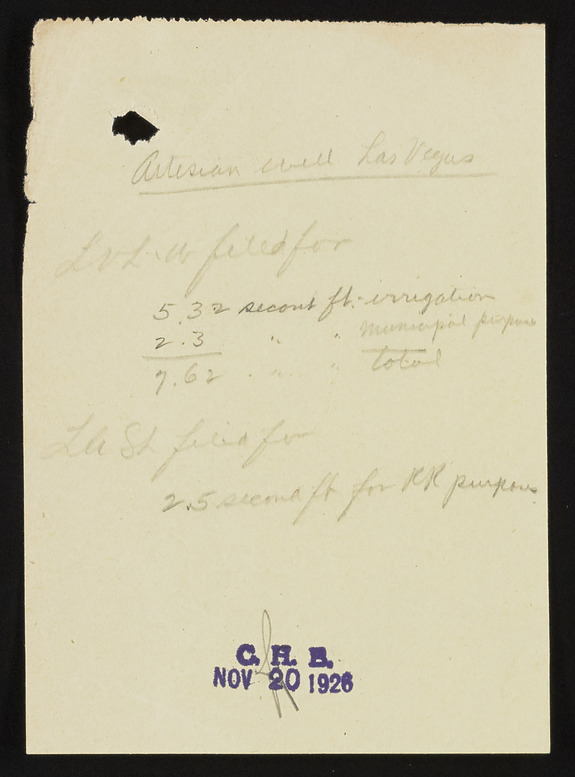 Artesian well Las Vegas
L V L & W filed for
5.32 second ft. irrigation
2.3 " " Municipal purpose
7.62 " " total
L A SL filed for
2.5 second ft for RR purpose
C. H. B.
NOV 20 1926